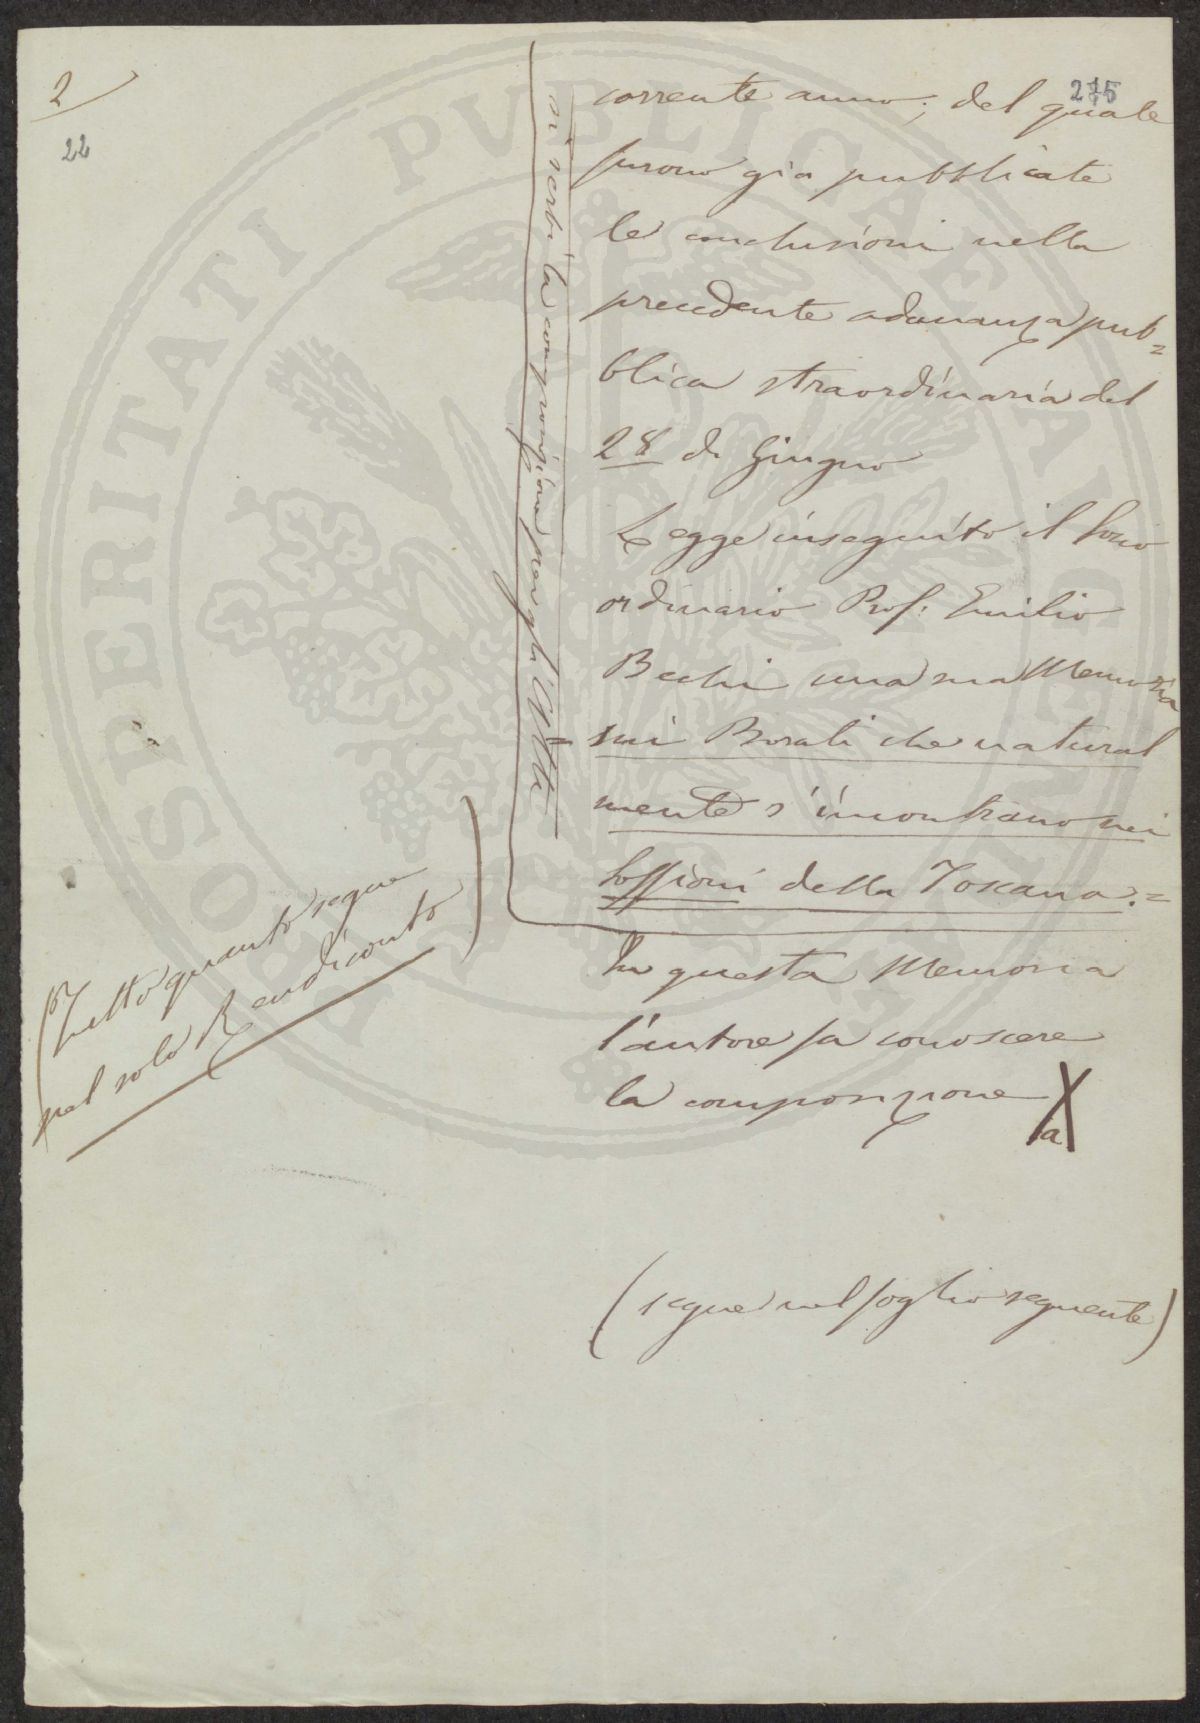 2
22
275
corrente anno; del quale
furono già pubblicate
le conclusioni nella
precedente adunanza pub=
blica straordinaria del
28 di Giugno
Legge inseguito il Socio
ordinario Prof. Emilio
Bechi una sua Memoria
sui Borati che natural
mente s'incontrano nei
Soffioni della Toscana.=
In questa Memoria
l'autore fa conoscere
la composizione
a
(segue nel foglio seguente)
si serbi la composizione per gli Atti
(Tutto quanto segue
pel solo Rendiconto)
PROSPERITATI PVBLICAE AVGENDAE